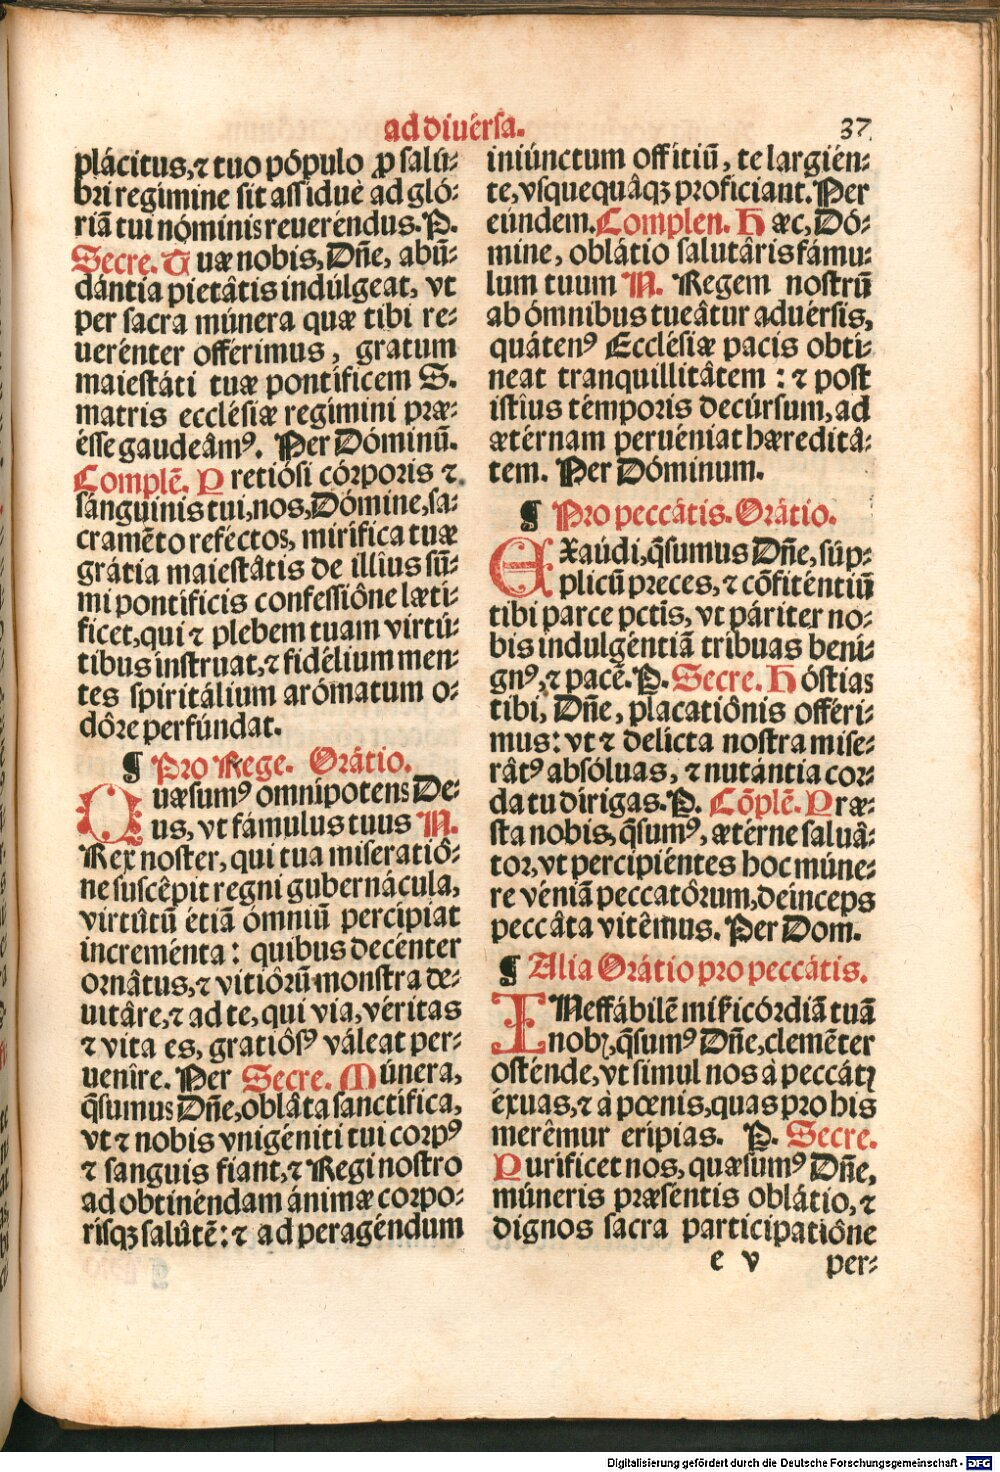 ad diuérsa.
37
plácitus, ⁊ tuo pópulo ꝓ salú⸗
bri regimine sit assiduè ad gló⸗
riã tui nóminis reueréndus. P.
Secre. Tuæ nobis, Dñe, abũ⸗
dántia pietâtis indúlgeat, vt
per sacra múnera quæ tibi re⸗
uerénter offérimus, gratum
maiestáti tuæ pontíficem S.
matris ecclésiæ regímini præ⸗
ésse gaudeâmꝰ. Per Dóminũ.
Complẽ. Pretiósi córporis ⁊
sánguinis tui, nos, Dómine, sa⸗
cramẽto reféctos, mirífica tuæ
grátia maiestâtis de illîus sũ⸗
mi pontíficis confessiône læti⸗
ficet, qui ⁊ plebem tuam virtú⸗
tibus ínstruat, ⁊ fidélium men⸗
tes spiritálium arómatum o⸗
dôre perfúndat.
¶ Pro Rege. Orâtio.
Quæsumꝰ omnípotens De⸗
us, vt fámulus tuus N.
Rex noster, qui tua miseratiô⸗
ne suscêpit regni gubernácula,
virtûtũ étiã ómniũ percípiat
increménta: quibus decénter
ornâtus, ⁊ vitiôrũ monstra de⸗
uitâre, ⁊ ad te, qui via, véritas
⁊ vita es, gratiôsꝰ váleat per⸗
uenîre. Per Secre. Múnera,
q̃sumus Dñe, oblâta sanctífica,
vt ⁊ nobis vnigéniti tui corpꝰ
⁊ sanguis fiant, ⁊ Regi nostro
ad obtinéndam ánimæ corpo⸗
risqꝫ salûtẽ: ⁊ ad peragéndum
iniúnctum offítiũ, te largién⸗
te, vsquequâqꝫ profíciant. Per
eúndem. Complen. Hæc, Dó⸗
mine, oblátio salutâris fámu⸗
lum tuum N. Regem nostrũ
ab ómnibus tueâtur aduérsis,
quátenꝰ Ecclésiæ pacis obtí⸗
neat tranquillitâtem: ⁊ post
istîus témporis decúrsum, ad
ætérnam peruéniat hæreditâ⸗
tem. Per Dóminum.
¶ Pro peccâtis. Orâtio.
EXaúdi, q̃sumus Dñe, súp⸗
plicũ preces, ⁊ cõfiténtiũ
tibi parce pctĩs, vt páriter no⸗
bis indulgéntiã tríbuas bení⸗
gnꝰ, ⁊ pacẽ. P. Secre. Hóstias
tibi, Dñe, placatiônis offéri⸗
mus: vt ⁊ delícta nostra mise⸗
râtꝰ absóluas, ⁊ nutántia cor⸗
da tu dírigas. P. Cõplẽ. Præ⸗
sta nobis, q̃sumꝰ, ætérne saluâ⸗
tor, vt percipiéntes hoc múne⸗
re véniã peccatôrum, deínceps
peccâta vitêmus. Per Dom.
¶ Alia Orátio pro peccâtis.
INeffábilẽ mĩẽicórdiã tuã
nobꝭ, q̃sumꝰ Dñe, clemẽter
osténde, vt simul nos à peccátꝭ
éxuas, ⁊ à pœnis, quas pro his
merêmur erípias. P. Secre.
Puríficet nos, quæsumꝰ Dñe,
múneris præséntis oblátio, ⁊
dignos sacra participatiône
e v
per⸗
Digitalisierung gefördert durch die Deutsche Forschungsgemeinschaft - DFG